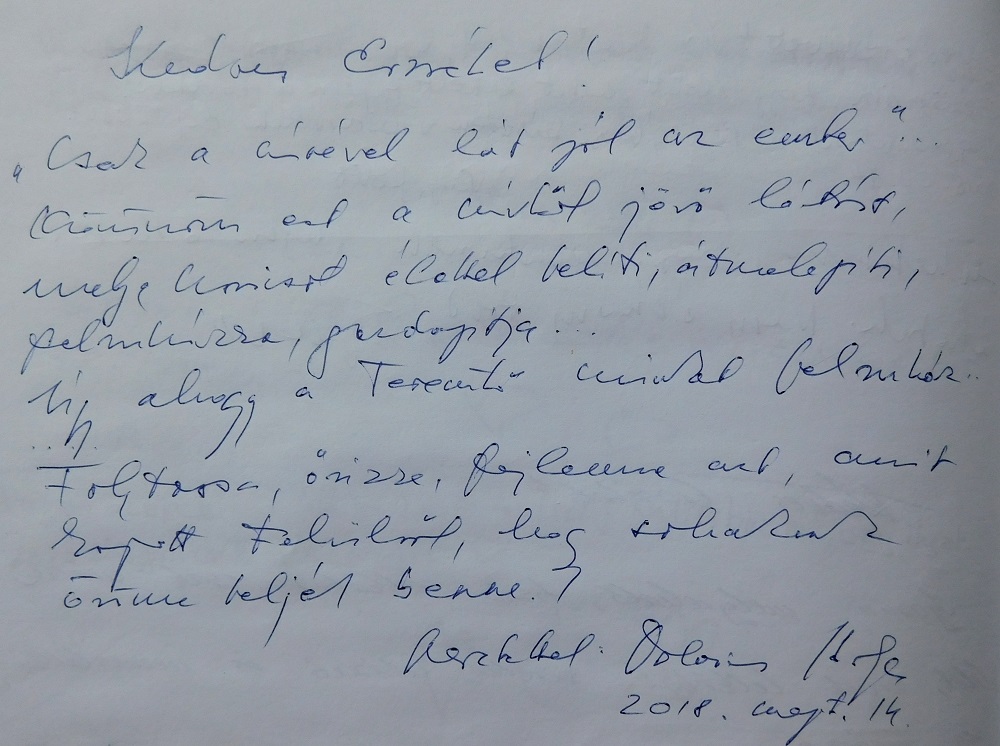 Kedves Erzsébet!
"Csak a szívével lát jól az ember"...
Köszönöm ezt a szívből jövő látást,
mely a kincset élettel telíti, átmelegíti,
felruházza, gazdagítja...
Úgy ahogy a Teremtő minket felruház..
Folytassa, őrizze, fejlessze azt, amit
kapott Felülről, hogy sokaknak
öröme teljék benne.
Szeretettel:
2018. szept. 14.